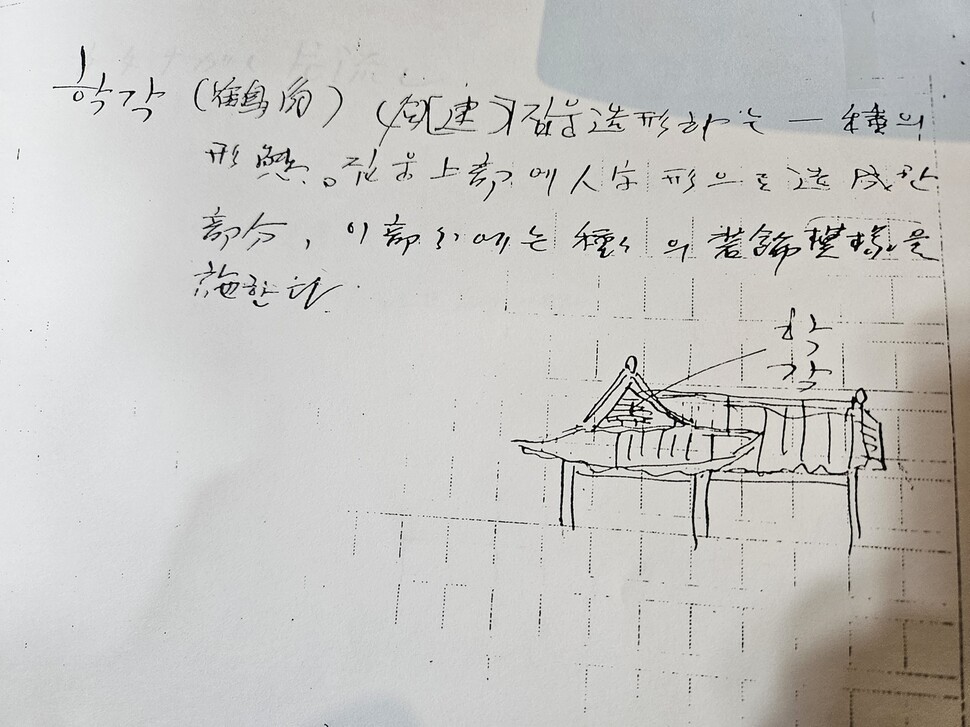 학각 (鶴角) [建] 지붕을 造形하는 一種의
形態。지붕 上部에 人字形으로 造成한
部分, 이 部分에는 種種의 裝飾模樣을
施한다.
학
각